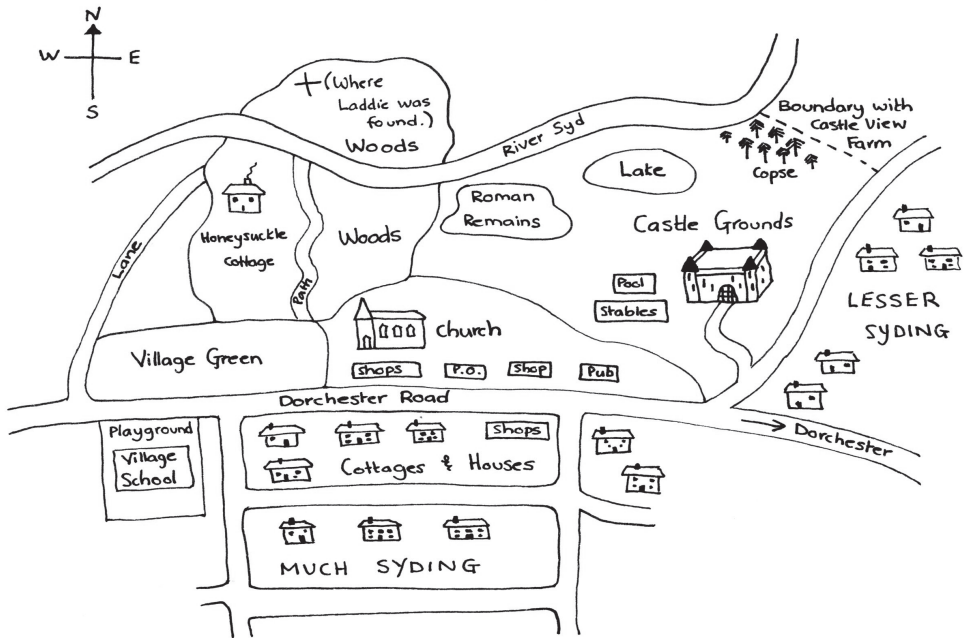 N
W E
S
(Where
Laddie was
found.)
Woods
River Syd
Boundary with
Castle View
Farm
Copse
Lake
Roman
Remains
Castle Grounds
Honeysuckle
Cottage
Woods
Lane
Path
Pool
Stables
LESSER
SYDING
Church
Village Green
Shops
P.O.
Shop
Pub
Dorchester Road
Dorchester
Playground
Village
School
Shops
Cottages & Houses
MUCH SYDING